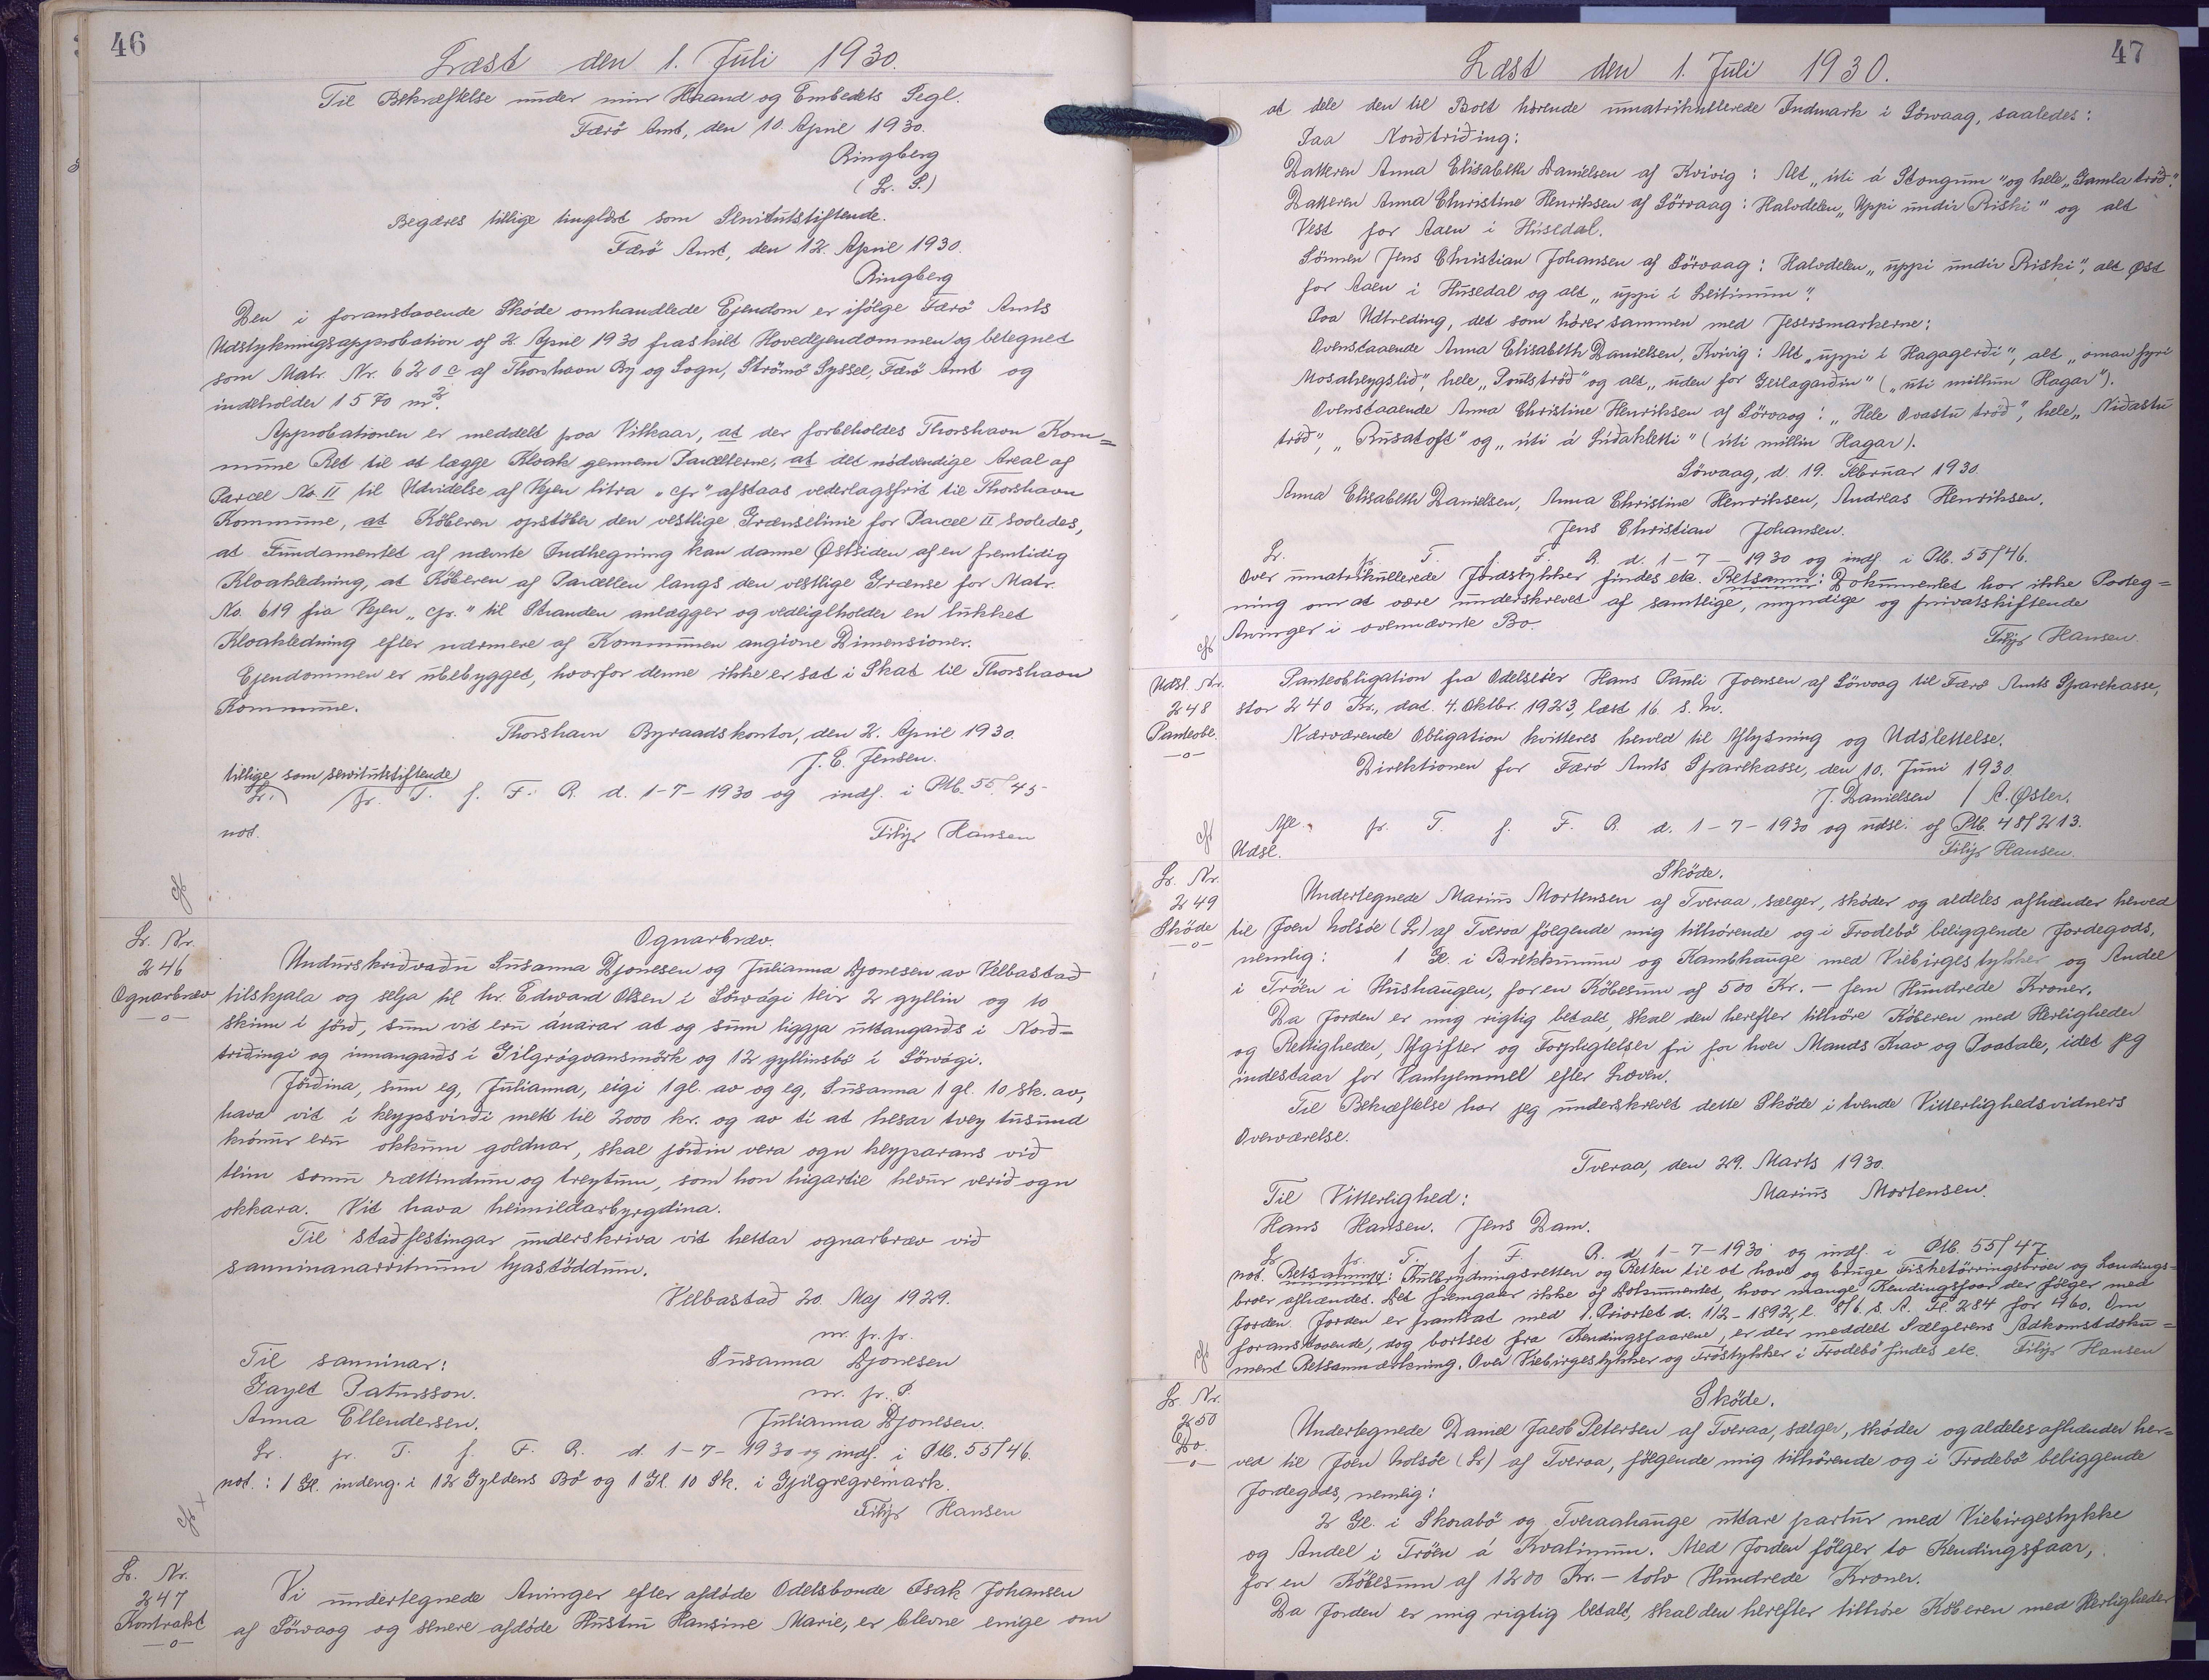 46
Læst den 1. Juli 1930.
Til Bekræftelse under min Haand og Embedets Segl.
Færö Amt, den 10. April 1930.
Ringberg
(L. S.)
Begæres tillige tinglæst som Servitutstiftende.
Færö Amt, den 12. April 1930.
Ringberg
Den i foranstaaende Sköde omhandlede Ejendom er ifölge Færö Amts
Udstykningsapprobation af 2. April 1930 fraskilt Hovedejendommen og betegnet
som Matr. Nr. 620 c af Thorshavn By og Sogn, Strömö Syssel, Færö Amt og
indeholder 1570 m².
Approbationen er meddelt paa Vilkaar, at der forbeholdes Thorshavn Kom=
mune Ret til at lægge Kloak gennem Parcellerne, at det nödvendige Areal af
Parcel No. II til Udvidelse af Vejen litra "cp" afstaas vederlagsfrit til Thorshavn
Kommune, at Köberen opstöber den vestlige Grænselinie for Parcel II saaledes,
at Fundamentet af nævnte Indhegning kan danne Østsiden af en fremtidig
Kloakledning, at Köberen af Parcellen langs den vestlige Grænse for Matr.
No. 619 fra Vejen "cp." til Stranden anlægger og vedligeholder en lukket
Kloakledning efter nærmere af Kommunen angivne Dimensioner.
Ejendommen er ubebygget, hvorfor denne ikke er sat i Skat til Thorshavn
Kommune.
Thorshavn Byraadskontor, den 2. April 1930.
J. C. Jensen.
tillige som servitutstiftende
Lr. p. T. f. F. R. d. 1-7-1930 og indf. i Ptb. 55/45
not. Filip Hansen
Lr. Nr.
246
Ognarbræv
Ognarbræv.
Undirskrivaðu Susanna Djonesen og Julianna Djonesen av Velbastað
tilskjala og selja til hr. Edward Olsen í Sörvági teir 2 gyllin og 10
skinn í jörð, sum vit eru ánarar at og sum liggja uttangarðs í Norð=
triðingi og innangarðs í Gilgrógvansmörk og 12 gyllinsbö í Sörvági.
Jörðina, sum eg, Julianna, eigi 1 gl. av og eg, Susanna 1 gl. 10 sk. av,
hava vit í keypsvirði mett til 2000 kr. og av tí at hesar tvey túsund
krónur eru okkum goldnar, skal jörðin vera ogn keyparans við
teim somu rættindum og treytum, som hon higartil hevur verið ogn
okkara. Vit hava heimildarbyrgdina.
Til staðfestingar underskriva vit hettar ognarbræv við
sanninarvitnum hjástöddum.
Velbastað 20. Maj 1929.
m. p. p.
Til sanninar: Susanna Djonesen
Gayet Patursson. m. p. P.
Anna Ellendersen. Julianna Djonesen.
Lr. p. T. f. F. R. d. 1-7-1930 og indf. i Ptb. 55/46.
not.: 1 Gl. indeng. i 12 Gyldens Bö og 1 Gl. 10 Sk. i Gjilgregremark.
Filip Hansen
Lr. Nr.
247
Kontrakt
Vi undertegnede Arvinger efter afdöde Odelsbonde Isak Johansen
af Sörvaag og senere afdöde Hustru Hansine Marie, er blevne enige om
47
Læst den 1. Juli 1930.
at dele den til Boet hörende umatrikullerede Indmark i Sörvaag, saaledes:
Paa Norðtriðing:
Datteren Anna Elisabeth Danielsen af Kvivig: Alt "úti á Stongum" og hele "Gamla tröð".
Datteren Anna Christine Henriksen af Sörvaag: Halvdelen "Uppi undir Riski" og alt
Vest for Aaen i Húsedal.
Sönnen Jens Christian Johansen af Sörvaag: Halvdelen "uppi undir Riski", alt Øst
for Aaen i Húsedal og alt "uppi í Leitinum".
Paa Udtreding, det som hörer sammen med Jesersmarkerne:
Ovenstaaende Anna Elisabeth Danielsen, Kvivig: Alt "uppi í Hagagerði", alt "oman fyri
Mosaheygslið", hele "Poulströð" og alt "uden for Geslagarðin" ("úti millum Hagar").
Ovenstaaende Anna Christine Henriksen af Sörvaag: "Hele Ovastu tröð", hele "Niðastu
tröð", "Rusatoft" og "úti á Liðakletti" (úti millin Hagar).
Sörvaag, d. 19. Februar 1930.
Anna Elisabeth Danielsen, Anna Christine Henriksen, Andreas Henriksen.
Jens Christian Johansen.
Lr. p. T. f. F. R. d. 1-7-1930 og indf. i Ptb. 55/46.
Over umatrikullerede Jordstykker findes etc. Retsanm: Dokumentet har ikke Paateg=
ning om at være underskrevet af samtlige, myndige og privatskiftende
Arvinger i ovennævnte Bo.
Filip Hansen.
Udsl. Nr.
248
Panteobl.
Panteobligation fra Odelsejer Hans Pauli Joensen af Sörvaag til Færö Amts Sparekasse,
stor 240 Kr., dat. 4. Oktbr. 1923, læst 16. s. M.
Nærværende Obligation kvitteres herved til Aflysning og Udslettelse.
Direktionen for Færö Amts Sparekasse, den 10. Juni 1930
J. Danielsen / A. Øster.
Afl. p. T. f. F. R. d. 1-7-1930 og udsl. af Ptb. 48/213.
Udsl. Filip Hansen.
Lr. Nr.
249
Sköde
Sköde.
Undertegnede Marius Mortensen af Tveraa, sælger, sköder og aldeles afhænder herved
til Joen Holsöe (Lr) af Tveraa fölgende mig tilhörende og i Frodebö beliggende Jordegods,
nemlig: 1 Gl. i Brekkunum og Kambhauge med Viebirgestykker og Andel
i Tröen i Hushaugen, for en Köbesum af 500 Kr. - fem Hundrede Kroner.
Da Jorden er mig rigtig betalt, skal den herefter tilhöre Köberen med Herligheder
og Rettigheder, Afgifter og Forpligtelser fri for hver Mands Krav og Paatale, idet jeg
indestaar for Vanhjemmel efter Loven.
Til Bekræftelse har jeg underskrevet dette Sköde i tvende Vitterlighedsvidners
Overværelse.
Tveraa, den 29. Marts 1930.
Til Vitterlighed: Marius Mortensen.
Hans Hansen. Jens Dam.
Lr. p. T. f. F. R. d. 1-7-1930 og indf. i Ptb. 55/47
not. Retsanm: Kulbrydningsretten og Retten til at have og bruge Fisketörringsbröer og Landings=
broer afhændet. Det fremgaar ikke af Dokumentet, hvor mange Kendingsfaar der fölger med
Jorden. Jorden er pantsat med 1. Prioritet d. 1/2-1892, l. 8/6 s. A. Fl. 284 for 460. Om
foranstaaende, dog bortset fra Kendingsfaarene, er der meddelt Sælgerens Adkomstdoku=
ment Retsanmærkning. Over Viebirgestykker og Tröstykker i Frodebö findes etc. Filip Hansen
Lr. Nr.
250
Do.
Sköde.
Undertegnede Daniel Jacob Petersen af Tveraa, sælger, sköder og aldeles afhænder her=
ved til Joen Holsöe (Lr) af Tveraa, fölgende mig tilhörende og i Frodebö beliggende
Jordegods, nemlig:
2 Gl. i Skorabö og Tveraahauge uttare partur med Viebirgestykke
og Andel i Tröen á Kvalinum. Med Jorden fölger to Kendingsfaar,
for en Köbesum af 1200 Kr. - tolv Hundrede Kroner.
Da Jorden er mig rigtig betalt, skal den herefter tilhöre Köberen med Herligheder